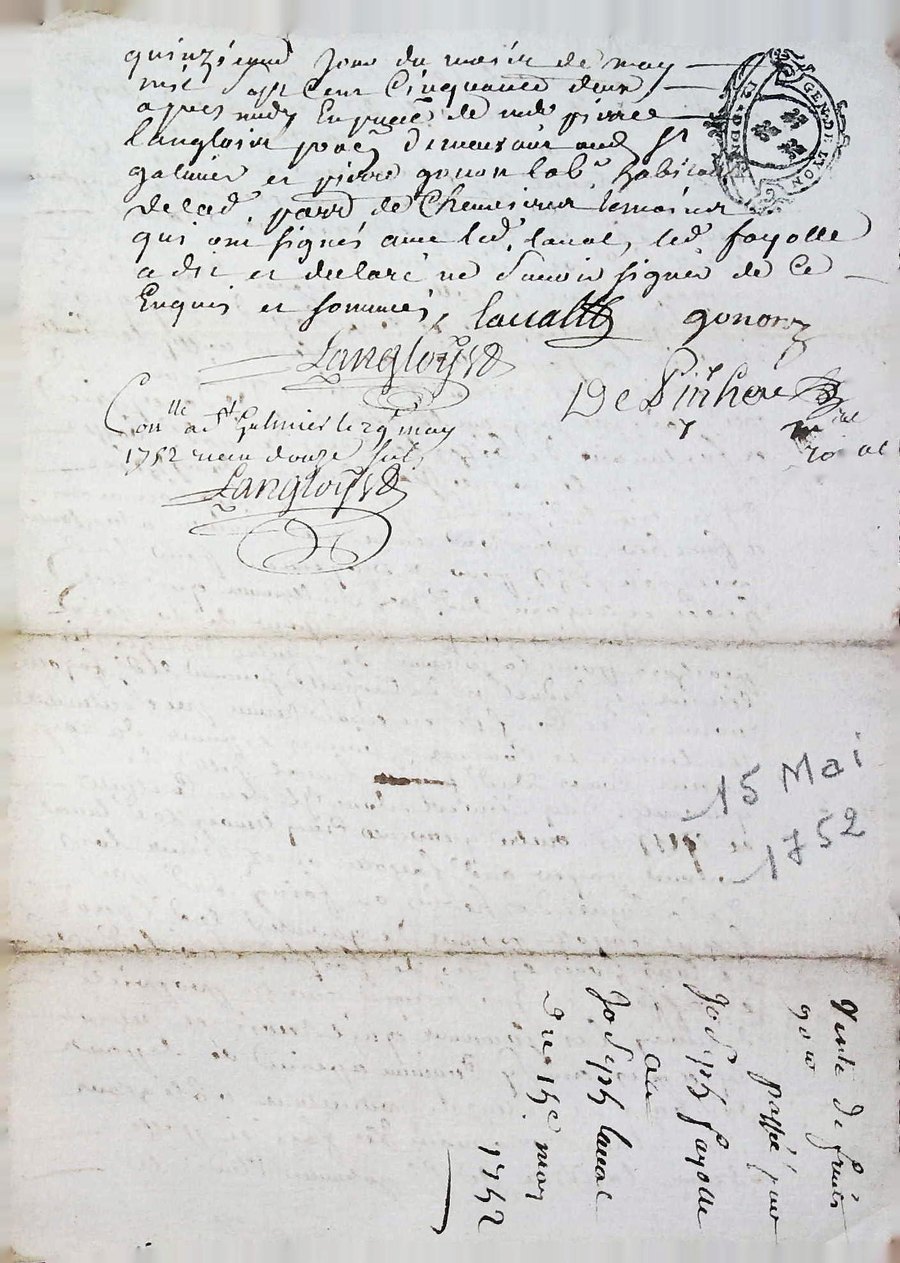 quinzieme Jour du moien de may
mil sept Cent Cinquante deux
apres midy En pnce de mre pierre
langlois demeurant aud St
galmier et pierre gonon lab. habitant
de lad. parr de Chevrieres temoins
qui ont signés avec led. laval, led. fayolle
a dit et declaré ne scavoir signer de ce
Enquis et sommés, lavall gonon
Langloys
DePinhac
Conlle a St Galmier le 29e may
1752 recu douze sols
Langloys
15 Mai
1752
Vente de fruits
passée par
Joseph fayolle
au
Joseph laval
Du 15e may
1752
GEN. DE LYON